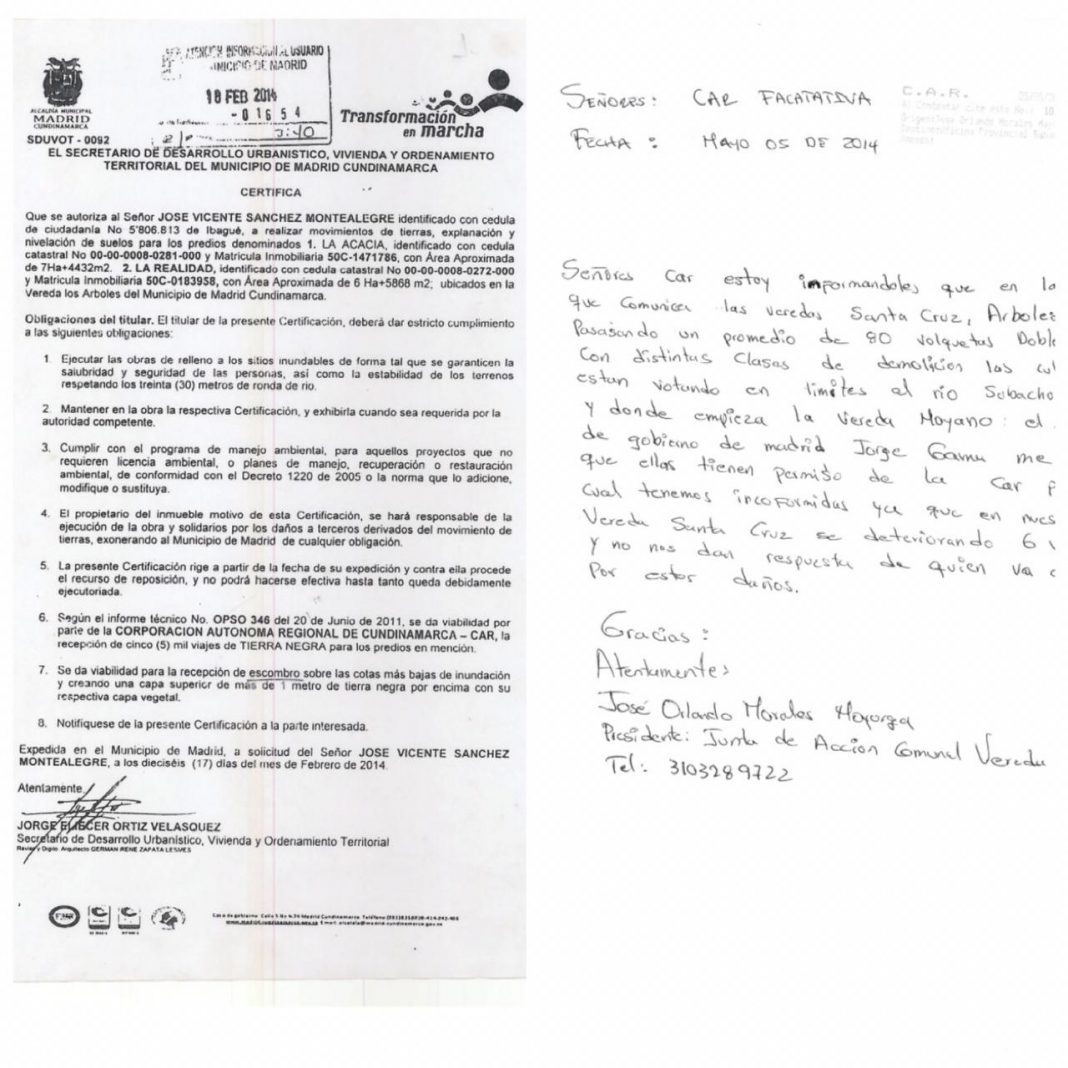 ATENCIÓN INFORMACIÓN AL USUARIO
MUNICIPIO DE MADRID
18 FEB 2014
- 0 1 6 5 4
3:40
ALCALDÍA MUNICIPAL
MADRID
CUNDINAMARCA
Transformación
en marcha
SDUVOT - 0092
EL SECRETARIO DE DESARROLLO URBANISTICO, VIVIENDA Y ORDENAMIENTO
TERRITORIAL DEL MUNICIPIO DE MADRID CUNDINAMARCA
CERTIFICA
Que se autoriza al Señor JOSE VICENTE SANCHEZ MONTEALEGRE identificado con cedula
de ciudadanía No 5'806.813 de Ibagué, a realizar movimientos de tierras, explanación y
nivelación de suelos para los predios denominados 1. LA ACACIA, identificado con cedula
catastral No 00-00-0008-0281-000 y Matricula Inmobiliaria 50C-1471786, con Área Aproximada
de 7Ha+4432m2. 2. LA REALIDAD, identificado con cedula catastral No 00-00-0008-0272-000
y Matricula Inmobiliaria 50C-0183958, con Área Aproximada de 6 Ha+5868 m2; ubicados en la
Vereda los Arboles del Municipio de Madrid Cundinamarca.
Obligaciones del titular. El titular de la presente Certificación, deberá dar estricto cumplimiento
a las siguientes obligaciones:
1. Ejecutar las obras de relleno a los sitios inundables de forma tal que se garanticen la
salubridad y seguridad de las personas, así como la estabilidad de los terrenos
respetando los treinta (30) metros de ronda de río.
2. Mantener en la obra la respectiva Certificación, y exhibirla cuando sea requerida por la
autoridad competente.
3. Cumplir con el programa de manejo ambiental, para aquellos proyectos que no
requieren licencia ambiental, o planes de manejo, recuperación o restauración
ambiental, de conformidad con el Decreto 1220 de 2005 o la norma que lo adicione,
modifique o sustituya.
4. El propietario del inmueble motivo de esta Certificación, se hará responsable de la
ejecución de la obra y solidarios por los daños a terceros derivados del movimiento de
tierras, exonerando al Municipio de Madrid de cualquier obligación.
5. La presente Certificación rige a partir de la fecha de su expedición y contra ella procede
el recurso de reposición, y no podrá hacerse efectiva hasta tanto queda debidamente
ejecutoriada.
6. Según el informe técnico No. OPSO 346 del 20 de Junio de 2011, se da viabilidad por
parte de la CORPORACION AUTONOMA REGIONAL DE CUNDINAMARCA – CAR, la
recepción de cinco (5) mil viajes de TIERRA NEGRA para los predios en mención.
7. Se da viabilidad para la recepción de escombro sobre las cotas más bajas de inundación
y creando una capa superior de más de 1 metro de tierra negra por encima con su
respectiva capa vegetal.
8. Notifiquese de la presente Certificación a la parte interesada.
Expedida en el Municipio de Madrid, a solicitud del Señor JOSE VICENTE SANCHEZ
MONTEALEGRE, a los dieciséis (17) días del mes de Febrero de 2014.
Atentamente,
JORGE ELIECER ORTIZ VELASQUEZ
Secretario de Desarrollo Urbanístico, Vivienda y Ordenamiento Territorial
Reviso y Digito. Arquitecto GERMAN RENE ZAPATA LESMES
SEÑORES: CAR FACATATIVA
C.A.R.
Al Contestar cite este No.: 10
FECHA: MAYO 05 DE 2014
Señores Car estoy informandoles que en la
que Comunica las veredas Santa Cruz, Arboles
Pasasando un promedio de 80 volquetas Doble
Con distintas Clases de demolición las cu
estan votando en limites al río Subacho
y donde empieza la Vereda Moyano: el
de gobierno de madrid Jorge Gamu me
que ellas tienen permiso de la Car P
Cual tenemos incoformidas ya que en nues
Vereda Santa Cruz se deteriorando 6
y no nos dan respuesta de quien va
Por estos daños.
Gracias:
Atentamente,
José Orlando Morales Mayorga
Presidente: Junta de Acción Comunal Vereda
Tel: 3103289722